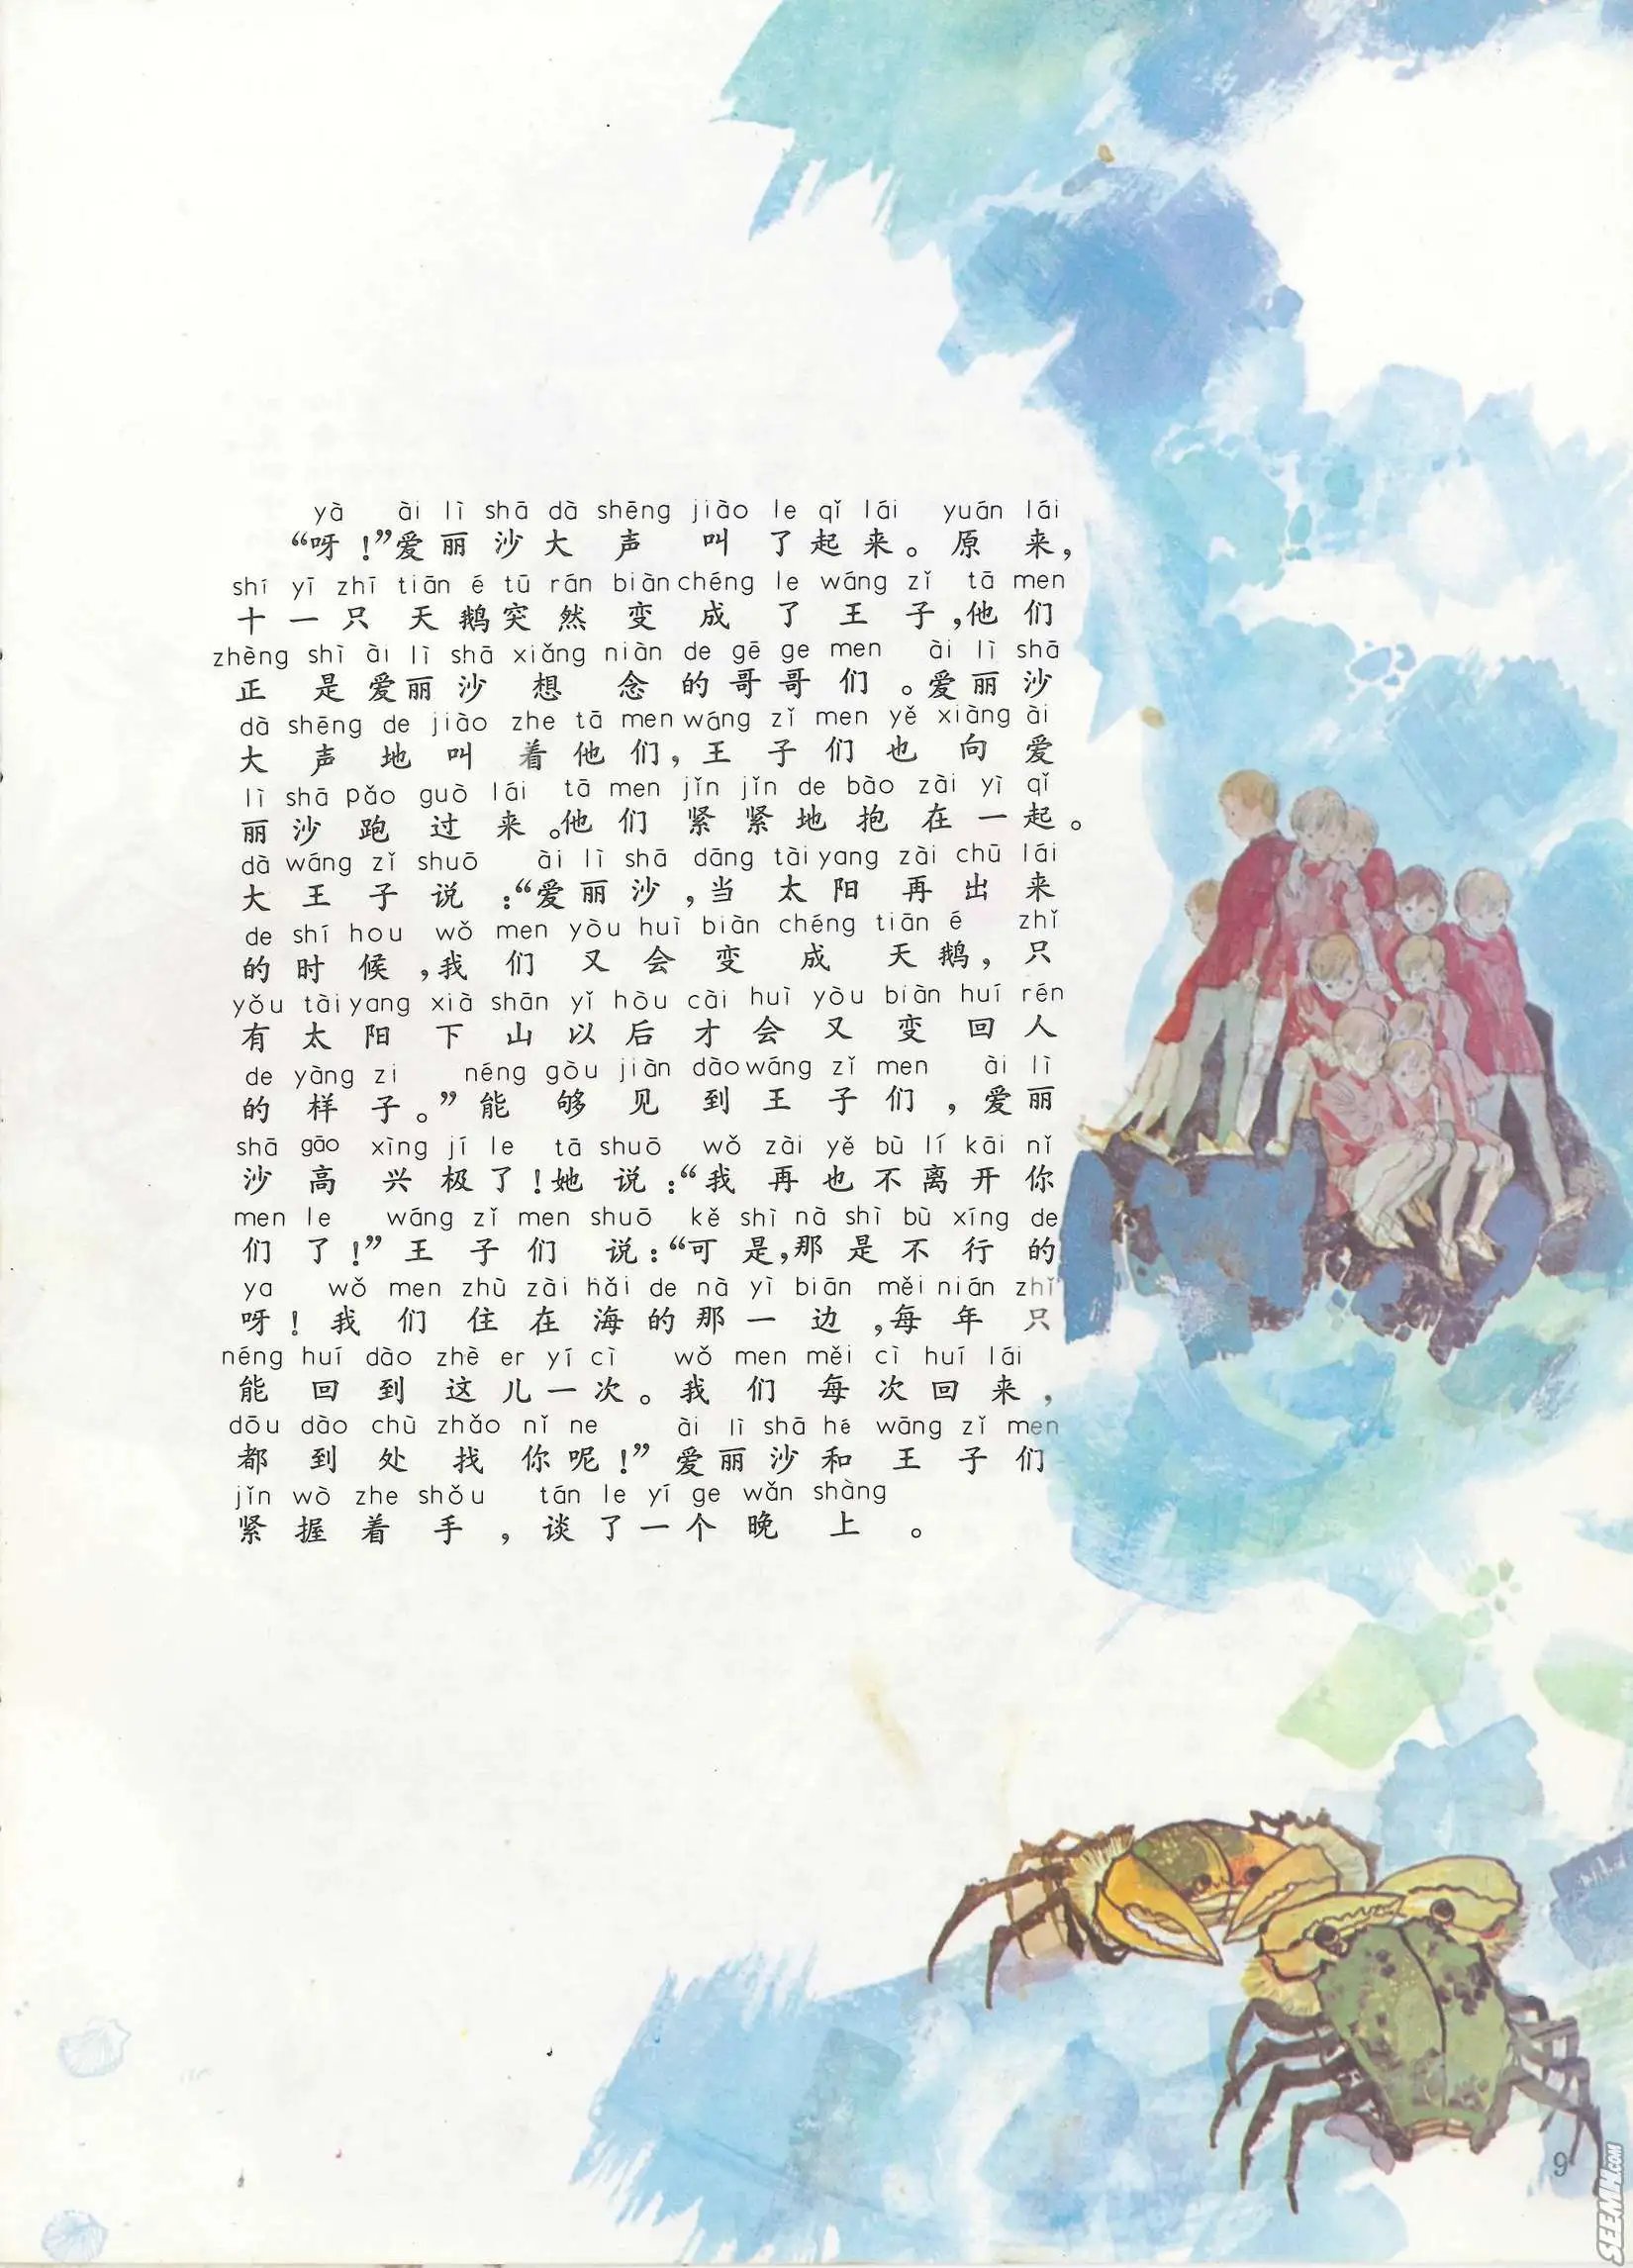 yà ài lì shā dà shēng jiào le qǐ lái yuán lái
“呀！”爱丽沙大声叫了起来。原来，
shí yī zhī tiān é tū rán biàn chéng le wáng zǐ tā men
十一只天鹅突然变成了王子，他们
zhèng shì ài lì shā xiǎng niàn de gē ge men ài lì shā
正是爱丽沙想念的哥哥们。爱丽沙
dà shēng de jiào zhe tā men wáng zǐ men yě xiàng ài
大声地叫着他们，王子们也向爱
lì shā pǎo guò lái tā men jǐn jǐn de bào zài yì qǐ
丽沙跑过来。他们紧紧地抱在一起。
dà wáng zǐ shuō ài lì shā dāng tài yang zài chū lái
大王子说：“爱丽沙，当太阳再出来
de shí hou wǒ men yòu huì biàn chéng tiān é zhǐ
的时候，我们又会变成天鹅，只
yǒu tài yang xià shān yǐ hòu cài huì yòu biàn huí rén
有太阳下山以后才会又变回人
de yàng zi néng gòu jiàn dào wáng zǐ men ài lì
的样子。”能够见到王子们，爱丽
shā gāo xìng jí le tā shuō wǒ zài yě bù lí kāi nǐ
沙高兴极了！她说：“我再也不离开你
men le wáng zǐ men shuō kě shì nà shì bù xíng de
们了！”王子们说：“可是，那是不行的
ya wǒ men zhù zài hǎi de nà yì biān měi nián zhǐ
呀！我们住在海的那一边，每年只
néng huí dào zhè er yí cì wǒ men měi cì huí lái
能回到这儿一次。我们每次回来，
dōu dào chù zhǎo nǐ ne ài lì shā hé wāng zǐ men
都到处找你呢！”爱丽沙和王子们
jǐn wò zhe shǒu tán le yí ge wǎn shàng
紧握着手，谈了一个晚上。
9
SEEMH.COM